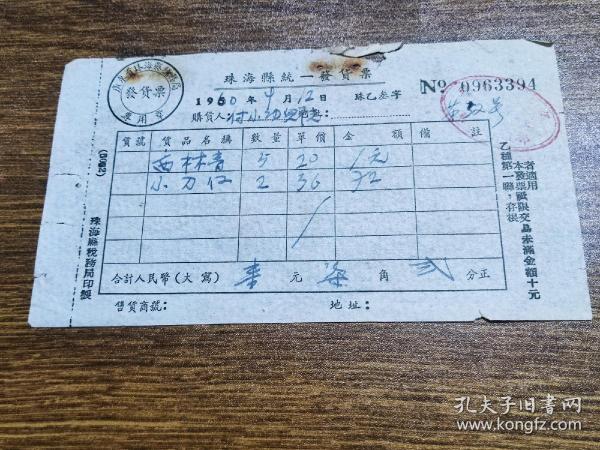 珠海縣統一發貨票
發貨票
專用章
1960年4月12日 珠乙叁字
№ 0963394
購貨人: 地址:
貨號 貨品名稱 數量 單價 金額 備註
5 20 1元
小刀仔 2 36 72
合計人民幣(大寫) 壹元 柒角 弍分正
售貨商號: 地址:
珠海縣稅務局印製
乙種第一聯:存根
本發票限交易未滿金額十元
者適用
孔夫子旧书网
kongfz.com